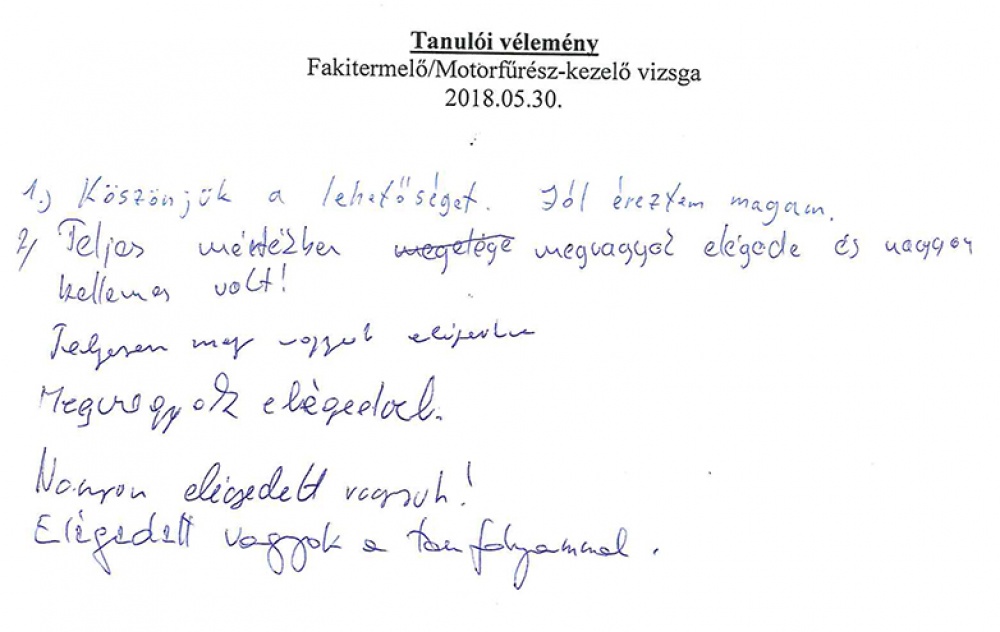 Tanulói vélemény
Fakitermelő/Motorfűrész-kezelő vizsga
2018.05.30.
1.) Köszönjük a lehetőséget. Jól éreztem magam.
2) Teljes mértékben megelége megvagyok elégede és naggyon
kellemes volt!
Teljesen meg vagyok
Megvagyok elégedve.
Nagyon elégedett vagyok!
Elégedett vagyok a tanfolyammal.